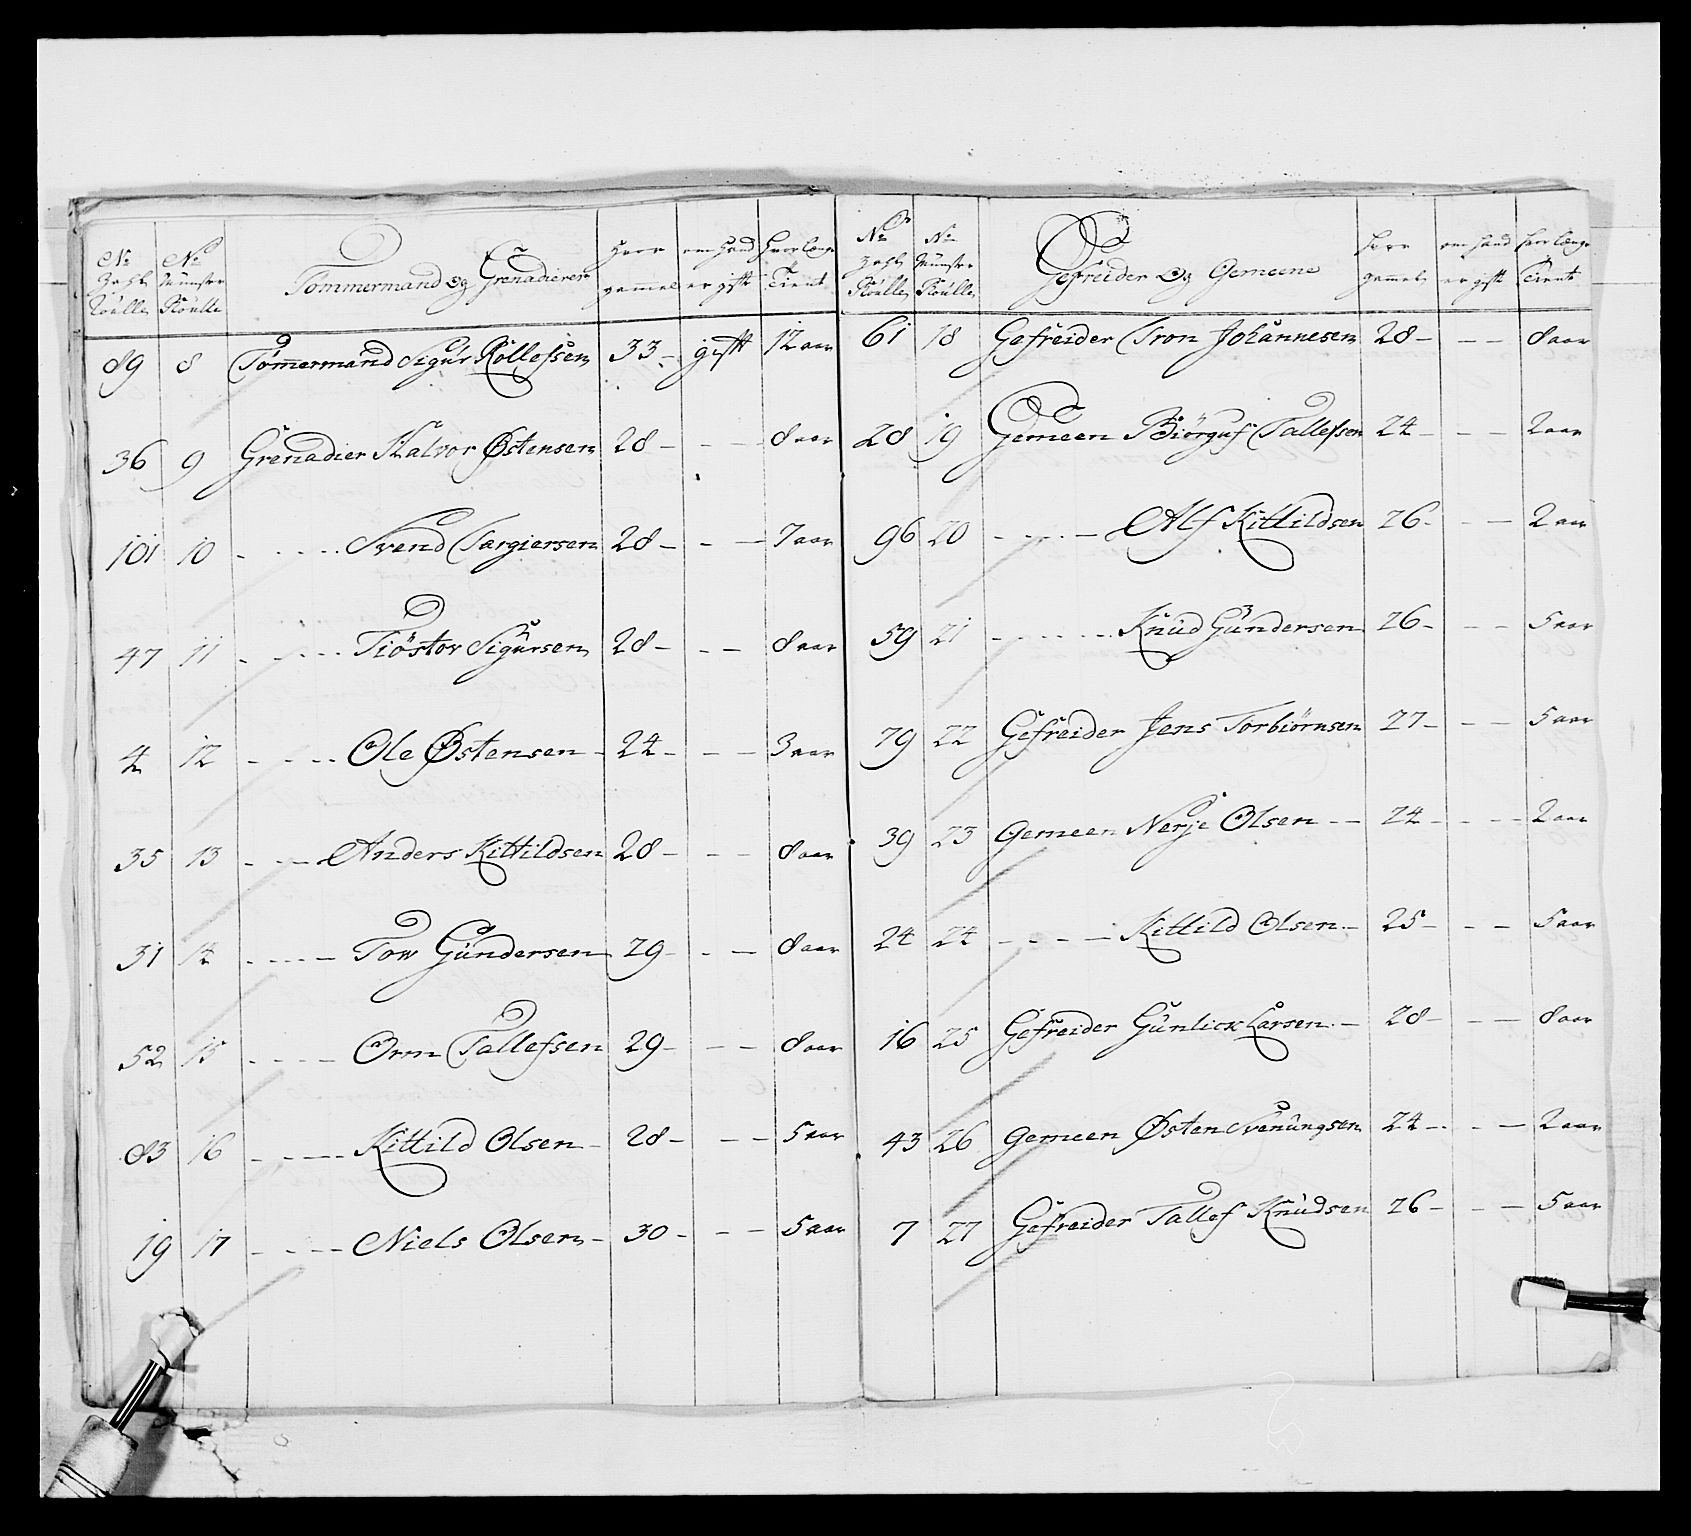 No Zahl Roulle | No Münster Roulle | Tømmermand og Grenadierer | Hvor gammel | om hand er gift | Hvor længe Tient
89 | 8 | Tømmermand Sigur Rollefsen | 33 - | gift | 12 aar
36 | 9 | Grenadier Halvor Østensen | 28 - | - - | 8 aar
101 | 10 | - - - - Svend Targiersen | 28 - | - - | 7 aar
47 | 11 | - - - - Tiøstor Sigursen | 28 - | - - | 8 aar
4 | 12 | - - - - Ole Østensen - | 24 - | - - | 3 aar
35 | 13 | - - - Anders Kittildsen | 28 - | - - | 8 aar
31 | 14 | - - - - Tow Gündersen | 29 - | - - | 8 aar
52 | 15 | - - - - Orm Tallefsen | 29 - | - - | 8 aar
83 | 16 | - - - - Kittild Olsen - | 28 - | - - | 5 aar
19 | 17 | - - - - Niels Olsen - | 30 - | - - | 5 aar
No Zahl Roulle | No Münster Roulle | Gefreider Og Gemeene | Hvor gammel | om hand er gift | hvor længe Tient
61 | 18 | Gefreider Tron Johannesen | 28 - | - - | 8 aar
28 | 19 | Gemeen Biörguf Tallefsen | 24 - | - - | 2 aar
96 | 20 | - - - - Alf Kittildsen | 26 - | - - | 2 aar
59 | 21 | - - - - Knud Gündersen | 26 - | - - | 5 aar
79 | 22 | Gefreider Jens Torbiørnsen | 27 - | - - | 5 aar
39 | 23 | Gemeen Nerje Olsen - - | 24 - | - - | 2 aar
24 | 24 | - - - - Kittild Olsen - | 25 - | - - | 5 aar
16 | 25 | Gefreider Günlick Larsen - | 28 - | - - | 8 aar
43 | 26 | Gemeen Østen Svenungsen | 24 - | - - | 2 aar
7 | 27 | Gefreider Tallef Knudsen | 26 - | - - | 5 aar